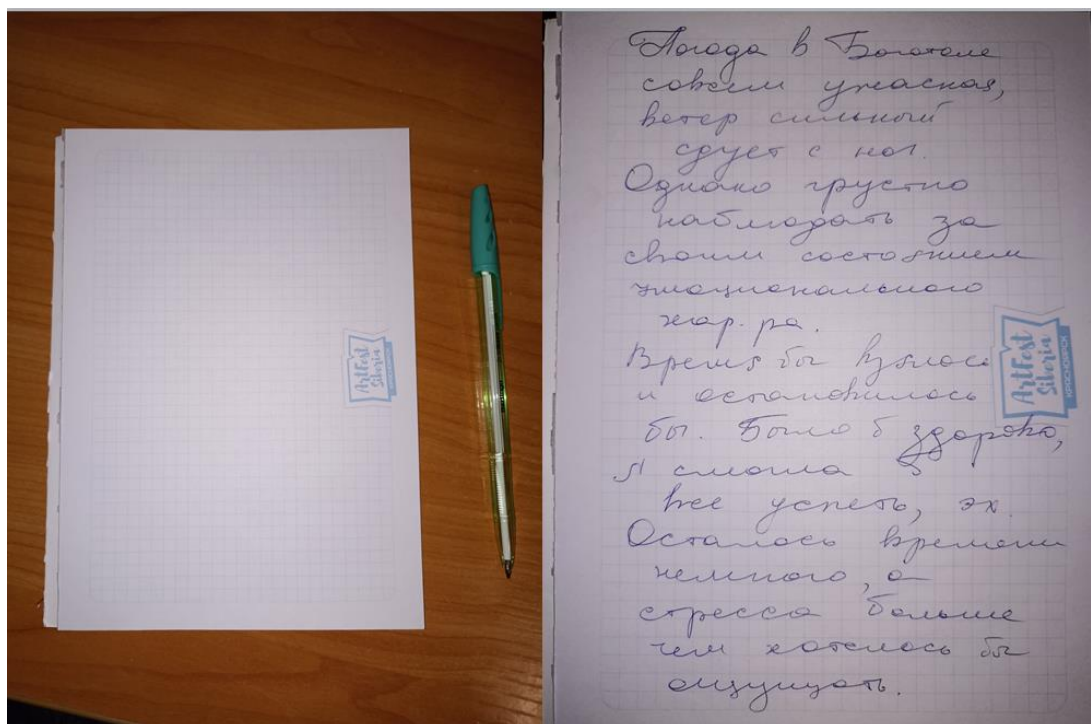 ArtFest
Siberia
КРАСНОЯРСК
Погода в Боготоле
совсем ужасная,
ветер сильный
сдует с ног.
Однако грустно
наблюдать за
своим состоянием
эмоционального
хар-ра.
Время бы взялось
и остановилось
бы. Было б здорово,
я смогла б
все успеть, эх.
Осталось времени
немного, а
стресса больше
чем хотелось бы
ощущать.
ArtFest
Siberia
КРАСНОЯРСК